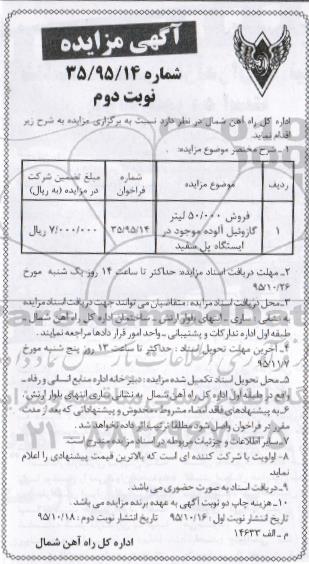 آگهی مزایده
شماره ۳۵/۹۵/۱۴
نوبت دوم
اداره کل راه آهن شمال در نظر دارد نسبت به برگزاری مزایده به شرح زیر
اقدام نماید.
۱- شرح مختصر موضوع مزایده:
ردیف موضوع مزایده شماره فراخوان مبلغ تضمین شرکت در مزایده (به ریال)
۱ فروش ۵۰/۰۰۰ لیتر گازوئیل آلوده موجود در ایستگاه پل سفید ۳۵/۹۵/۱۴ ۷/۰۰۰/۰۰۰ ریال
۲- مهلت دریافت اسناد مزایده: حداکثر تا ساعت ۱۴ روز یک شنبه مورخ
۹۵/۱۰/۲۶
۳- محل دریافت اسناد مزایده: متقاضیان می توانند جهت دریافت اسناد مزایده
به نشانی ساری - انتهای بلوار ارتش - ساختمان اداره کل راه آهن شمال -
طبقه اول اداره تدارکات و پشتیبانی - واحد امور قرار دادها مراجعه نمایند.
۴- آخرین مهلت تحویل اسناد: حداکثر تا ساعت ۱۳ روز پنج شنبه مورخ
۹۵/۱۱/۷
۵- محل تحویل اسناد تکمیل شده مزایده: دبیرخانه اداره منابع انسانی و رفاه -
واقع در طبقه اول اداره کل راه آهن شمال به نشانی ساری انتهای بلوار ارتش.
۶- به پیشنهادهای فاقد امضاء مشروط، مخدوش و پیشنهاداتی که بعد از مدت
مقرر در فراخوان واصل شود مطلقا ترتیب اثر داده نخواهد شد.
۷- سایر اطلاعات و جزئیات مربوطه در اسناد مزایده مندرج است.
۸- اولویت با شرکت کننده ای است که بالاترین قیمت پیشنهادی را اعلام
نماید.
۹- دریافت اسناد به صورت حضوری می باشد.
۱۰- هزینه چاپ دو نوبت آگهی به عهده برنده مزایده می باشد.
تاریخ انتشار نوبت اول: ۹۵/۱۰/۱۶ تاریخ انتشار نوبت دوم: ۹۵/۱۰/۱۸
م - الف ۱۴۶۳۳
اداره کل راه آهن شمال